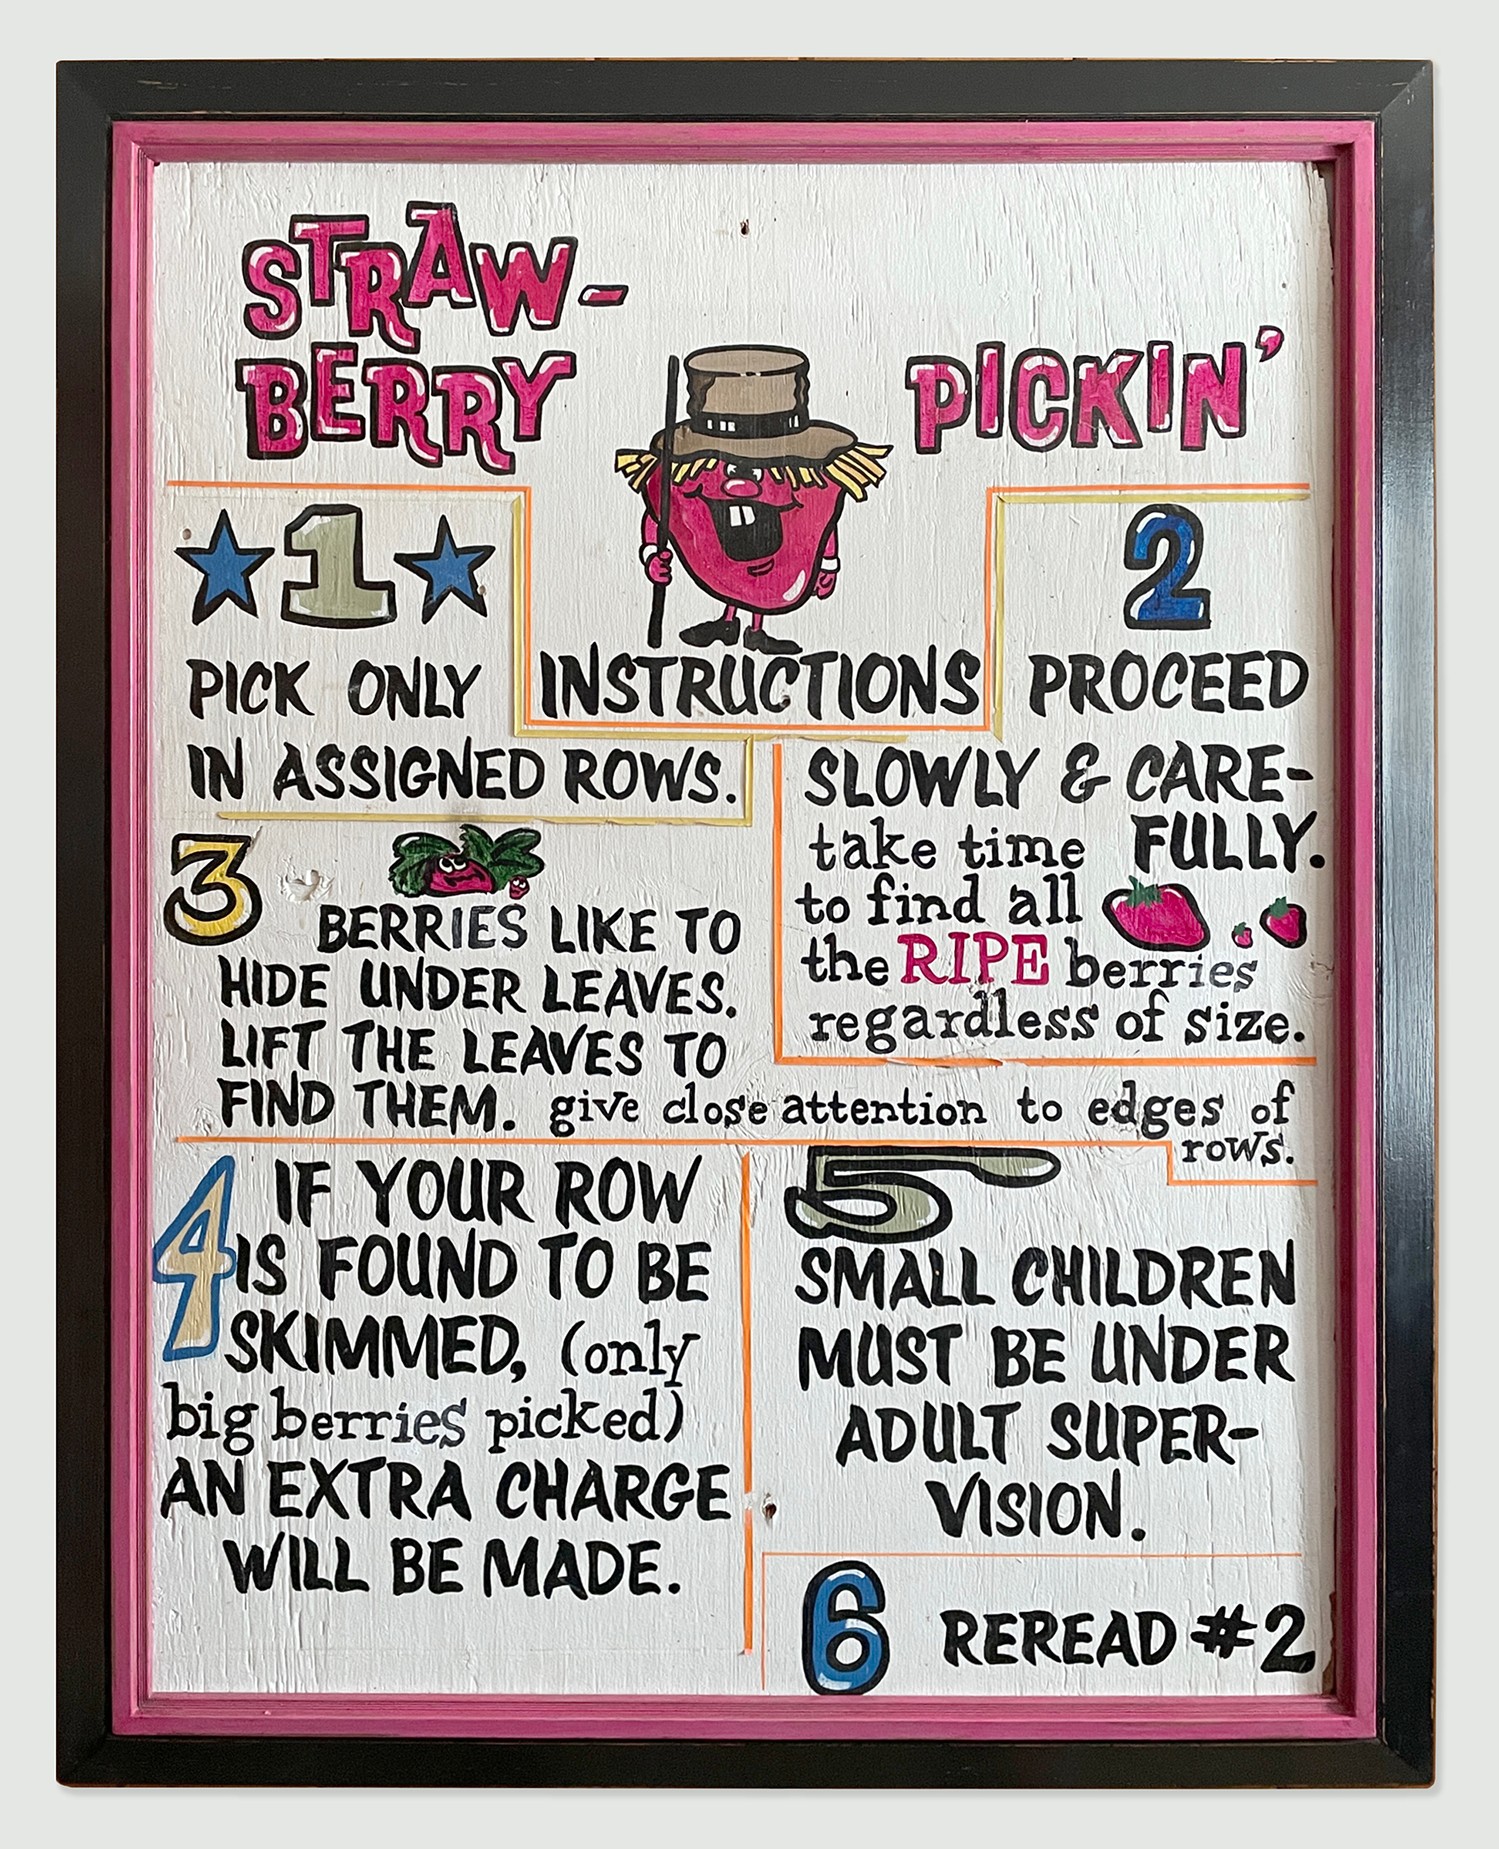 STRAW-
BERRY
PICKIN'
INSTRUCTIONS
1
PICK ONLY
IN ASSIGNED ROWS.
2
PROCEED
SLOWLY & CARE-
FULLY.
take time
to find all
the RIPE berries
regardless of size.
3
BERRIES LIKE TO
HIDE UNDER LEAVES.
LIFT THE LEAVES TO
FIND THEM. give close attention to edges of
rows.
4
IF YOUR ROW
IS FOUND TO BE
SKIMMED, (only
big berries picked)
AN EXTRA CHARGE
WILL BE MADE.
5
SMALL CHILDREN
MUST BE UNDER
ADULT SUPER-
VISION.
6 REREAD #2